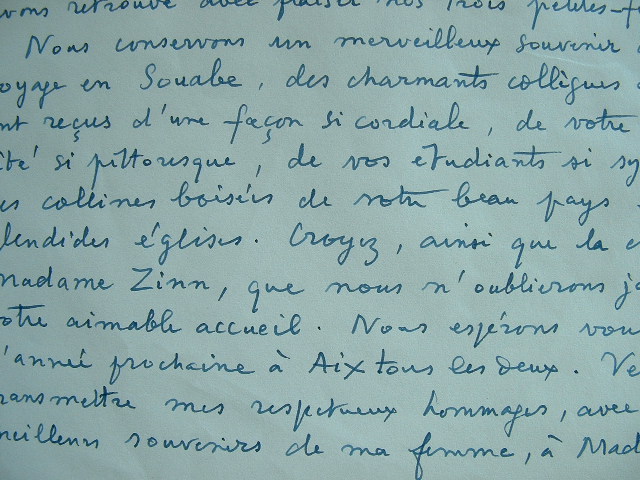 vons retrouvé avec plaisir nos trois petites-f
Nous conservons un merveilleux souvenir d
oyage en Souabe, des charmants collègues
nt reçus d'une façon si cordiale, de votre
ité si pittoresque, de vos étudiants si sy
es collines boisées de notre beau pays
lendides églises. Croyez, ainsi que la c
madame Zinn, que nous n'oublierons ja
otre aimable accueil. Nous espérons vou
l'année prochaine à Aix tous les deux. Ve
ransmettre mes respectueux hommages, avec
meilleurs souvenirs de ma femme, à Mad